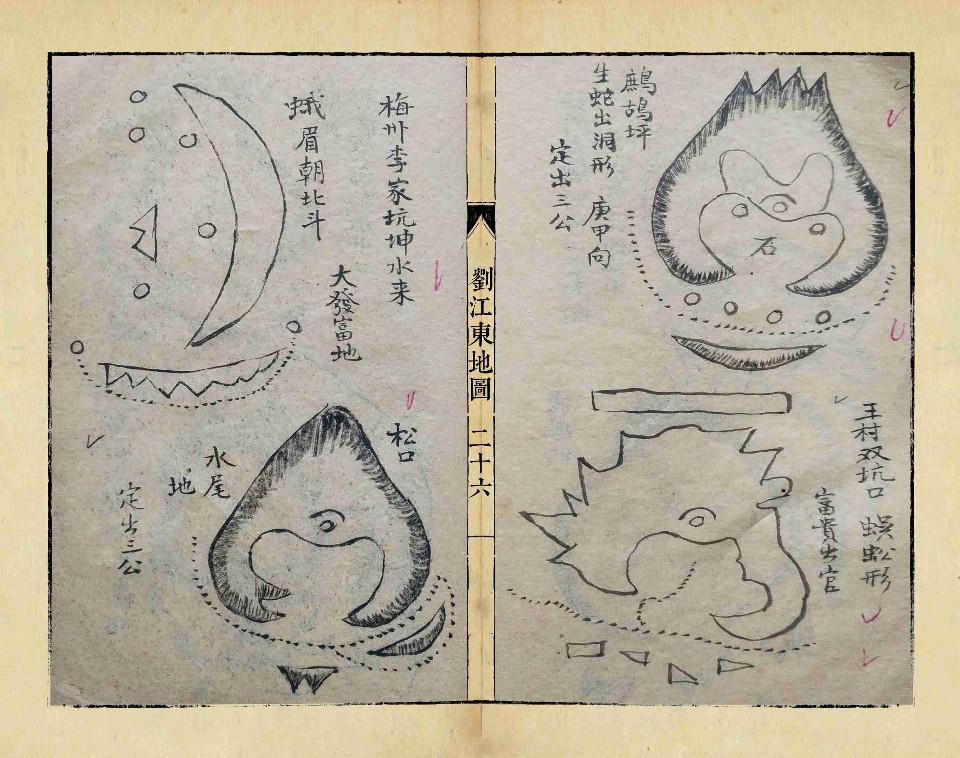 鷓鴣坪
生蛇出洞形 庚甲向
定出三公
石
王村双坑口 蜈蚣形
富貴出官
劉江東地圖 二十六
梅州李家坑坤水来
蛾眉朝北斗
大發富地
松口
水尾
地
定出三公